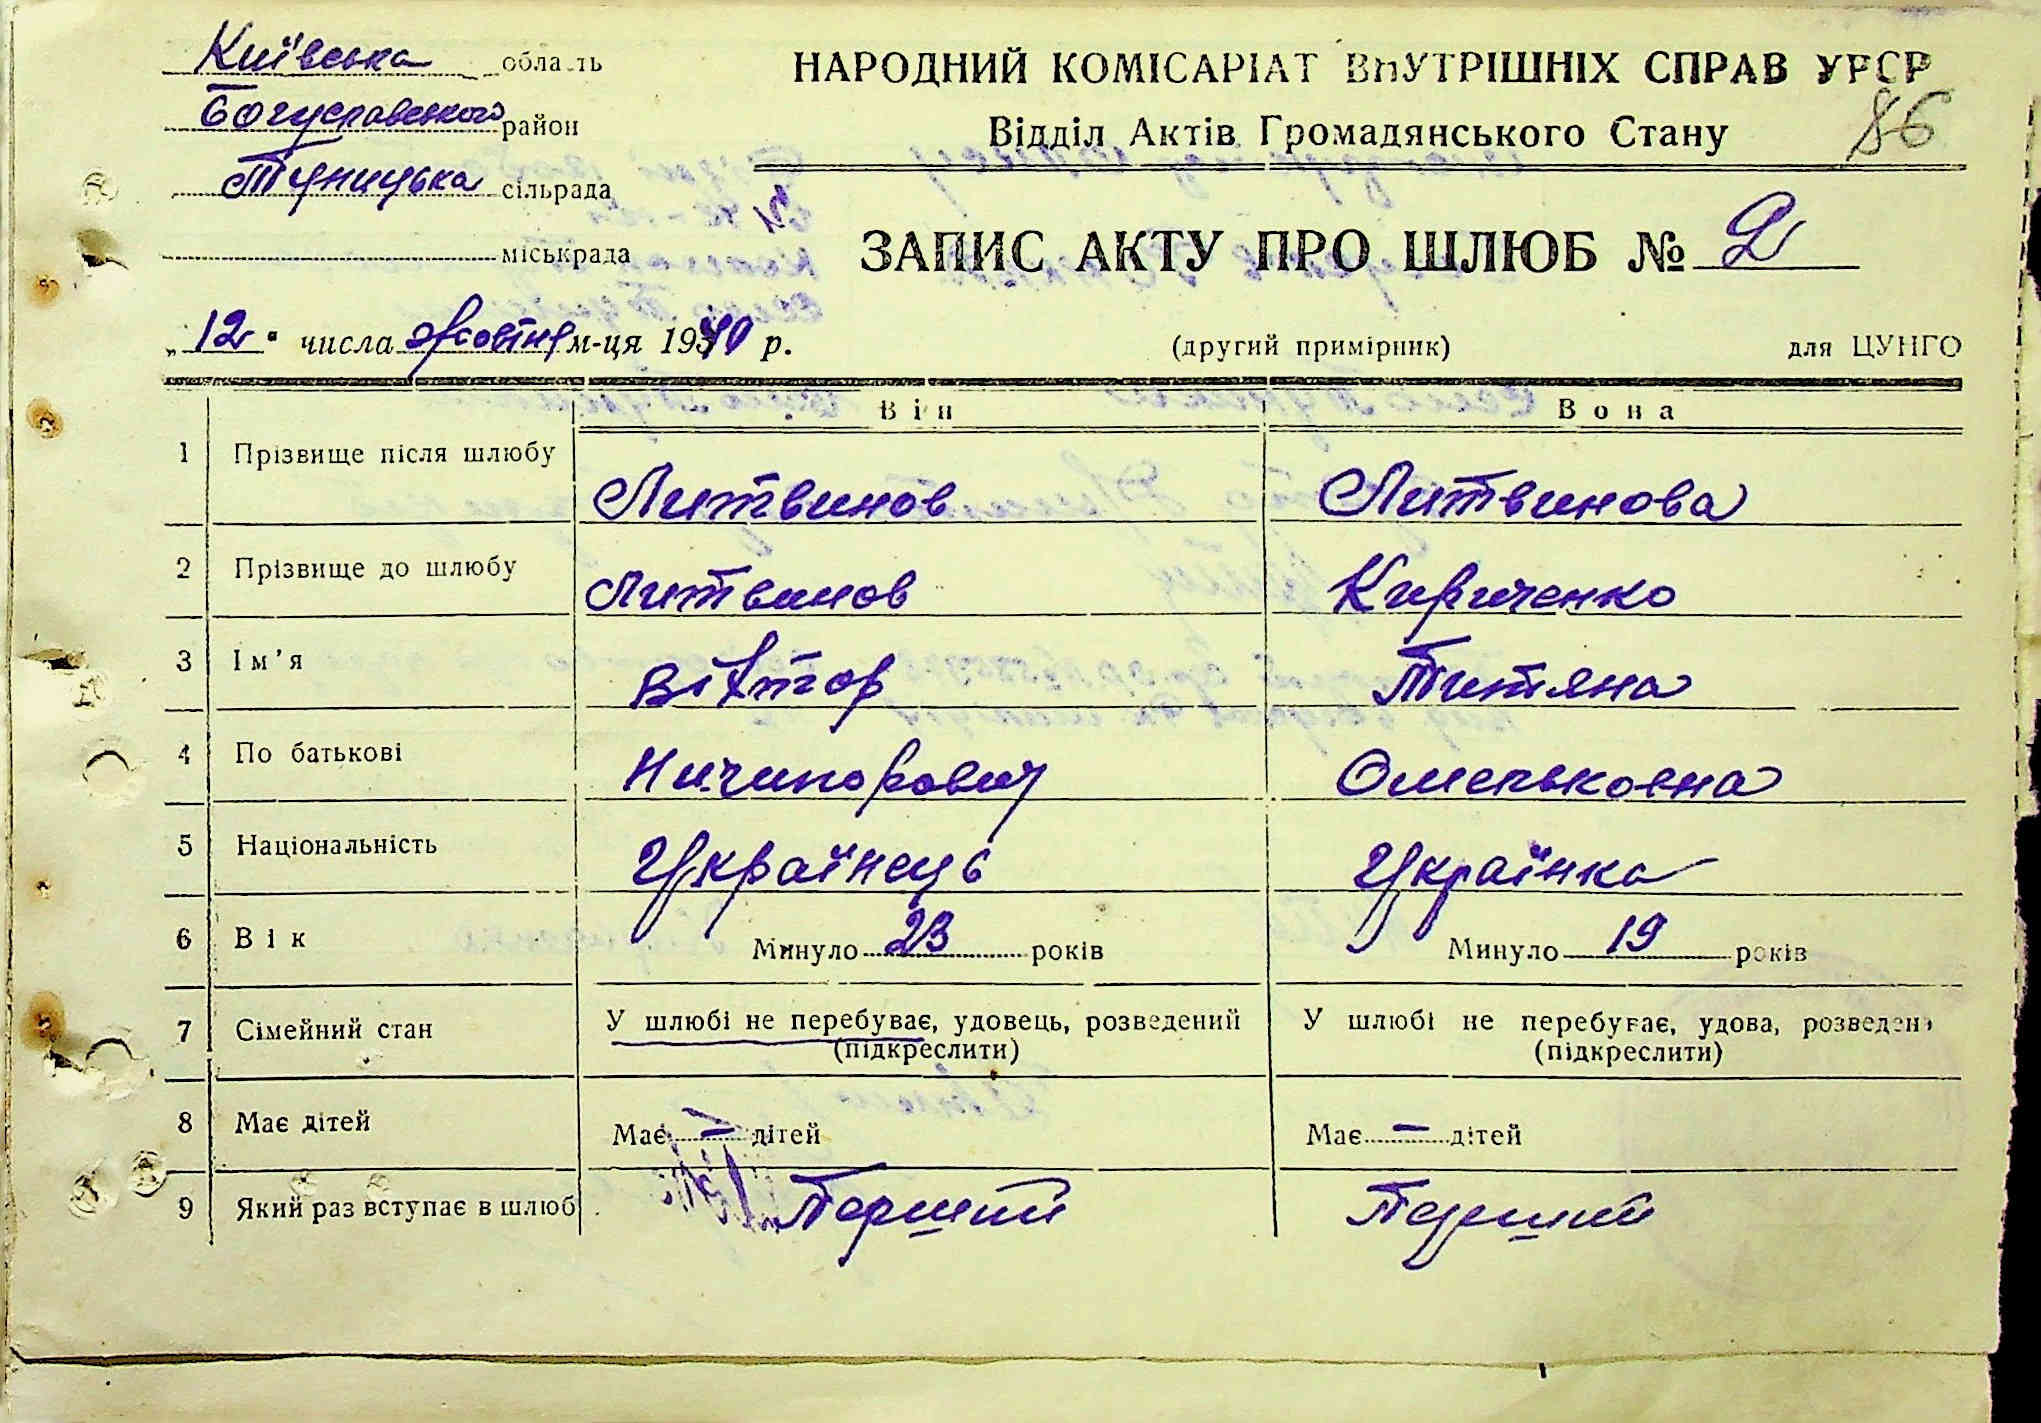 Київська область
Богуславського район
Туницька сільрада
міськрада
НАРОДНИЙ КОМІСАРІАТ ВНУТРІШНІХ СПРАВ УРСР
Відділ Актів Громадянського Стану
86
ЗАПИС АКТУ ПРО ШЛЮБ № 2
„12" числа жовтня м-ця 1940 р.
(другий примірник) для ЦУНГО
Він Вона
1 Прізвище після шлюбу Литвинов Литвинова
2 Прізвище до шлюбу Литвинов Кириченко
3 Ім'я Віктор Титяна
4 По батькові Ничипорович Омельковна
5 Національність Українець Українка
6 Вік Минуло 23 років Минуло 19 років
7 Сімейний стан У шлюбі не перебуває, удовець, розведений У шлюбі не перебуває, удова, розведена
(підкреслити) (підкреслити)
8 Має дітей Має — дітей Має — дітей
9 Який раз вступає в шлюб Перший Перший